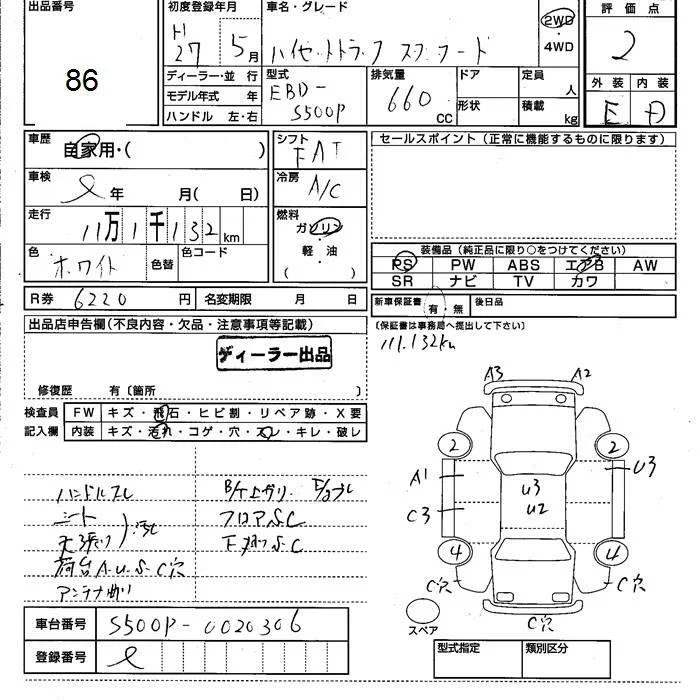 出品番号 初度登録年月 車名・グレード 評価点
86 H 27 5月 ハイゼットトラック 2WD・4WD 2
ディーラー・並行 型式 排気量 ドア 定員 人 外装 内装
モデル年式 年 EBD-S500P 660 CC 形状 積載 kg E D
ハンドル 左・右
車歴 シフト セールスポイント(正常に機能するものに限ります)
自家用・( ) FAT
車検 冷房
年 月( 日) A/C
走行 燃料
11万1千132km ガソリン・軽油( )
色 色替 色コード 装備品(純正品に限り○をつけてください)
ホワイト PS PW ABS エアB AW
SR ナビ TV カワ
R券 6220円 名変期限 月 日 新車保証書 有・無 後日品
出品店申告欄(不良内容・欠品・注意事項等記載) (保証書は事務局へ提出して下さい)
ディーラー出品 111,132km
修復歴 有〔箇所 〕
検査員 FW キズ・飛石・ヒビ割・リペア跡・X要
記入欄 内装 キズ・汚れ・コゲ・穴・スレ・キレ・破レ
A3 A2
2 2
A1 U3 U3
C3 U2
4 4
C穴 C穴
C穴
スペア
ハンドルスレ
シート
天張り
フロアS.C
荷台A.U.S.C穴
アンテナ曲り
車台番号 S500P-0020306
登録番号
型式指定 類別区分